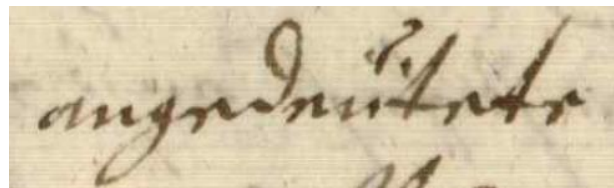 angedeütete